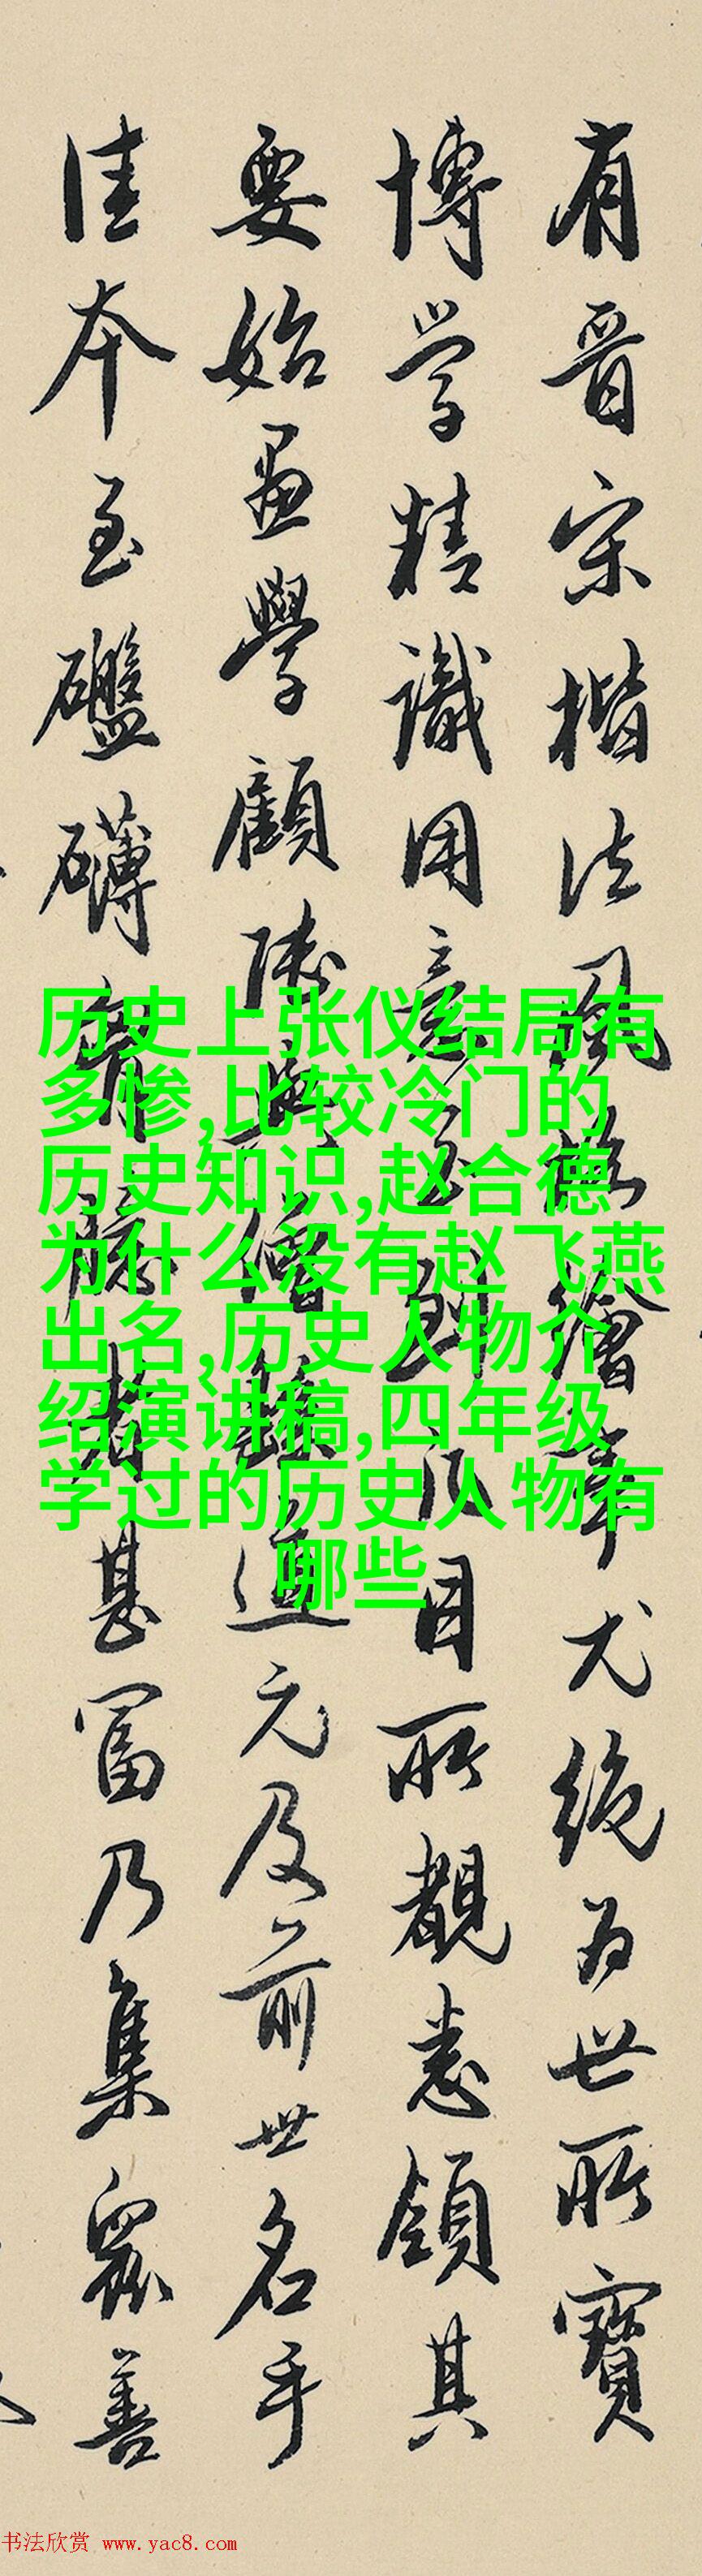 有晋宋楷法风
绘事尤绝为世所寶
博学精識用意
目所覩悉領其
要始畫學顧陸與僧繇道元及前世名手
佳本至礠礴
甚富乃集眾善
历史上张仪结局有
多惨,比较冷门的
历史知识,赵合德
为什么没有赵飞燕
出名,历史人物介
绍演讲稿,四年级
学过的历史人物有
哪些
书法欣赏 www.yac8.com